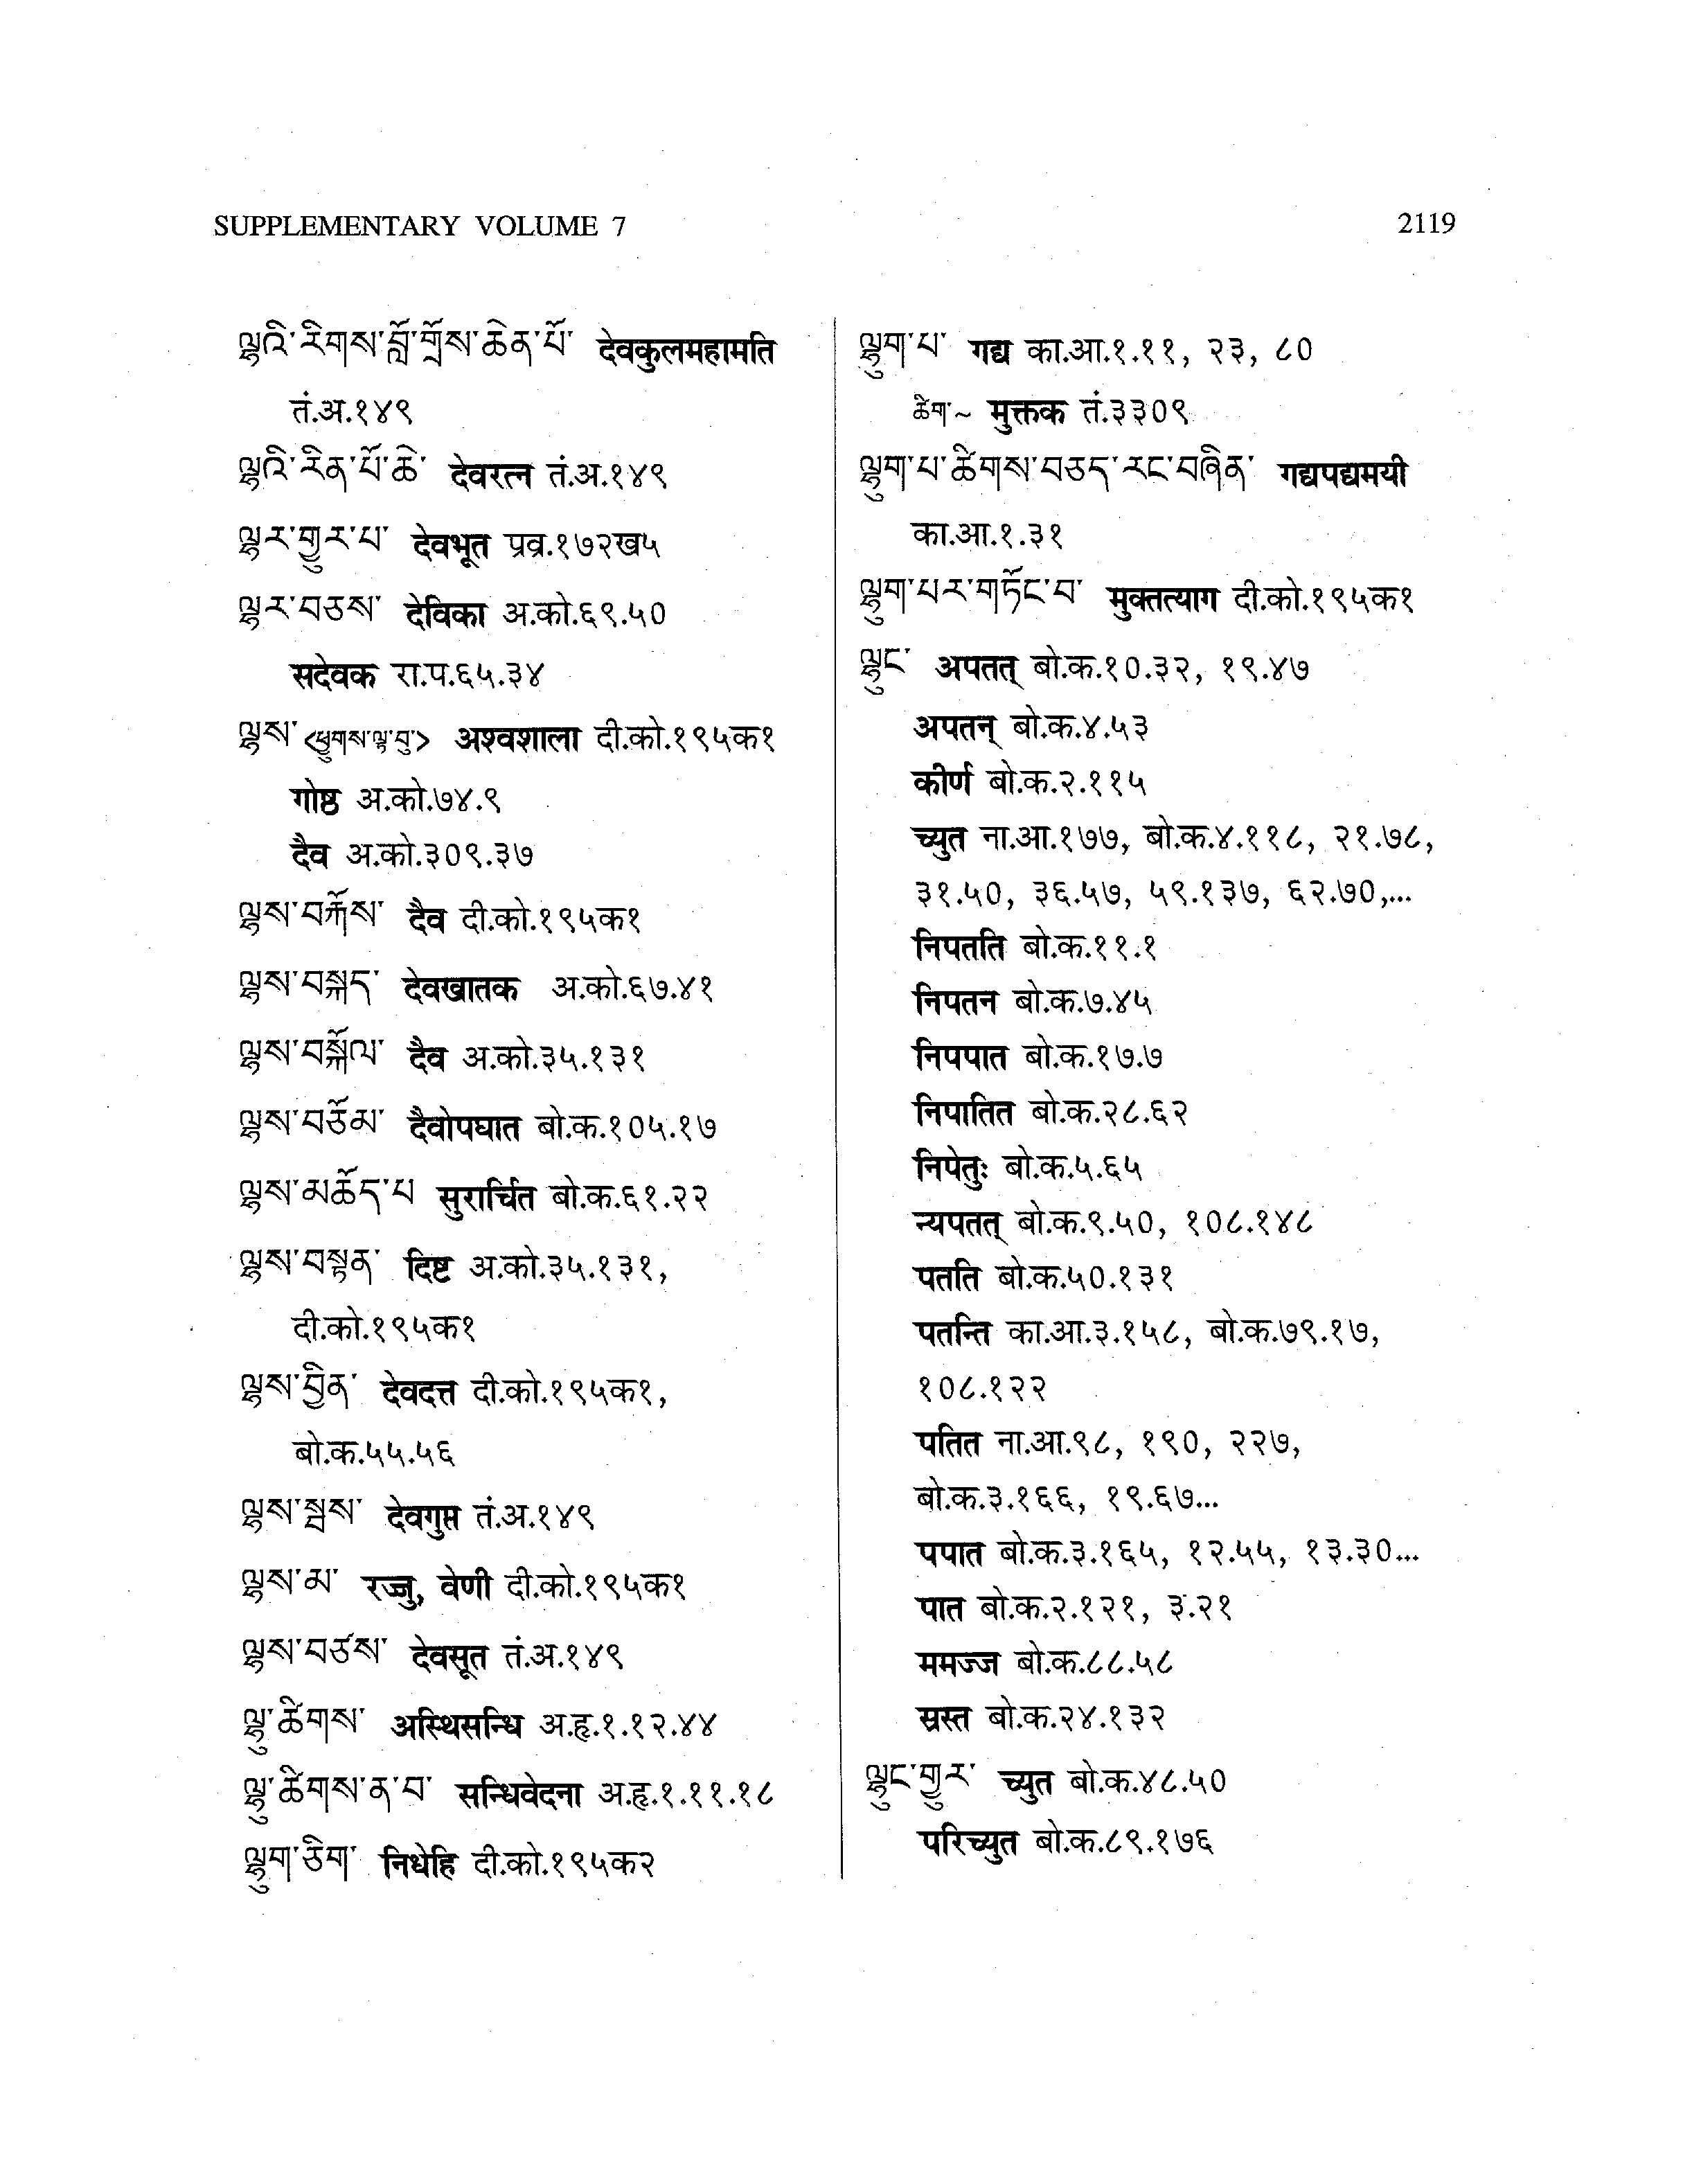 SUPPLEMENTARY VOLUME 7
2119
ལྷའི་རིགས་བློ་གྲོས་ཆེན་པོ་ देवकुलमहामति
तं.अ.१४९
ལྷའི་རིན་པོ་ཆེ་ देवरत्न तं.अ.१४९
ལྷར་གྱུར་པ་ देवभूत प्रव्र.१७२ख५
ལྷར་བཅས་ देविका अ.को.६९.५०
सदेवक रा.प.६५.३४
ལྷས་ <ཕྱུགས་ལྟ་བུ་> अश्वशाला दी.को.१९५क१
गोष्ठ अ.को.७४.९
दैव अ.को.३०९.३७
ལྷས་བཀོས་ दैव दी.को.१९५क१
ལྷས་བསྐད་ देवखातक अ.को.६७.४१
ལྷས་བསྐོལ་ दैव अ.को.३५.१३१
ལྷས་བཅོམ་ दैवोपघात बो.क.१०५.१७
ལྷས་མཆོད་པ सुरार्चित बो.क.६१.२२
ལྷས་བསྟན་ दिष्ट अ.को.३५.१३१,
दी.को.१९५क१
ལྷས་བྱིན་ देवदत्त दी.को.१९५क१,
बो.क.५५.५६
ལྷས་སྦས་ देवगुप्त तं.अ.१४९
ལྷས་མ་ रज्जु, वेणी दी.को.१९५क१
ལྷས་བཙས་ देवसूत तं.अ.१४९
ལྷུ་ཚིགས་ अस्थिसन्धि अ.हृ.१.१२.४४
ལྷུ་ཚིགས་ན་བ་ सन्धिवेदना अ.हृ.१.११.१८
ལྷུག་ཅིག་ निधेहि दी.को.१९५क२
ལྷུག་པ་ गद्य का.आ.१.११, २३, ८०
ཚིག་~ मुक्तक तं.३३०९
ལྷུག་པ་ཚིགས་བཅད་རང་བཞིན་ गद्यपद्यमयी
का.आ.१.३१
ལྷུག་པར་གཏོང་བ་ मुक्तत्याग दी.को.१९५क१
ལྷུང་ अपतत् बो.क.१०.३२, १९.४७
अपतन् बो.क.४.५३
कीर्ण बो.क.२.११५
च्युत ना.आ.१७७, बो.क.४.११८, २१.७८,
३१.५०, ३६.५७, ५९.१३७, ६२.७०,...
निपतति बो.क.११.१
निपतन बो.क.७.४५
निपपात बो.क.१७.७
निपातित बो.क.२८.६२
निपेतुः बो.क.५.६५
न्यपतत् बो.क.९.५०, १०८.१४८
पतति बो.क.५०.१३१
पतन्ति का.आ.३.१५८, बो.क.७९.१७,
१०८.१२२
पतित ना.आ.९८, १९०, २२७,
बो.क.३.१६६, १९.६७...
पपात बो.क.३.१६५, १२.५५, १३.३०...
पात बो.क.२.१२१, ३.२१
ममज्ज बो.क.८८.५८
स्रस्त बो.क.२४.१३२
ལྷུང་གྱུར་ च्युत बो.क.४८.५०
परिच्युत बो.क.८९.१७६